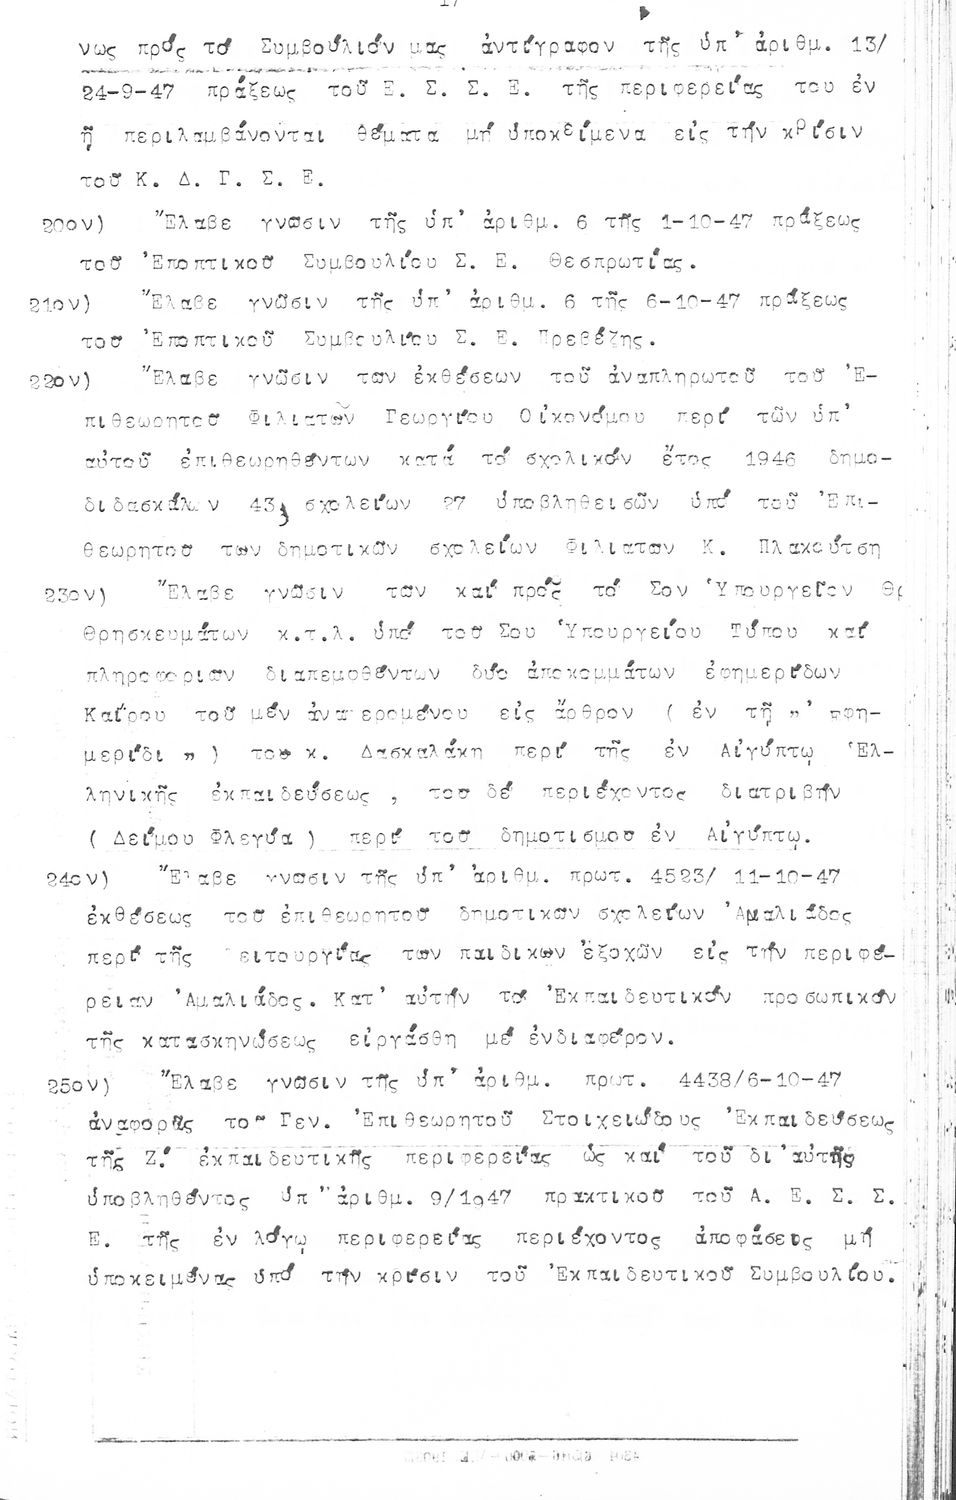 17
νως πρός τό Συμβούλιόν μας ἀντίγραφον τῆς ὑπ' ἀριθμ. 13/
24-9-47 πράξεως τοῦ Ε. Σ. Σ. Ε. τῆς περιφερείας του ἐν
ᾗ περιλαμβάνονται θέματα μή ὑποκείμενα εἰς τήν κρίσιν
τοῦ Κ. Δ. Γ. Σ. Ε.
20ον) Ἔλαβε γνῶσιν τῆς ὑπ' ἀριθμ. 6 τῆς 1-10-47 πράξεως
τοῦ Ἐποπτικοῦ Συμβουλίου Σ. Ε. Θεσπρωτίας.
21ον) Ἔλαβε γνῶσιν τῆς ὑπ' ἀριθμ. 6 τῆς 6-10-47 πράξεως
τοῦ Ἐποπτικοῦ Συμβουλίου Σ. Ε. Πρεβέζης.
22ον) Ἔλαβε γνῶσιν τῶν ἐκθέσεων τοῦ ἀναπληρωτοῦ τοῦ Ἐ-
πιθεωρητοῦ Φιλιατῶν Γεωργίου Οἰκονόμου περί τῶν ὑπ'
αὐτοῦ ἐπιθεωρηθέντων κατά τό σχολικόν ἔτος 1946 δημο-
διδασκάλων 43, σχολείων 27 ὑποβληθεισῶν ὑπό τοῦ Ἐπι-
θεωρητοῦ τῶν δημοτικῶν σχολείων Φιλιατῶν Κ. Πλακούτση
23ον) Ἔλαβε γνῶσιν τῶν καί πρός τό Σον Ὑπουργεῖον Θρ
θρησκευμάτων κ.τ.λ. ὑπό τοῦ Σου Ὑπουργείου Τύπου καί
πληροφοριῶν διαπεμφθέντων δύο ἀποκομμάτων ἐφημερίδων
Καΐρου τοῦ μέν ἀναφερομένου εἰς ἄρθρον ( ἐν τῇ " Ἐφη-
μερίδι " ) τοῦ κ. Δασκαλάκη περί τῆς ἐν Αἰγύπτῳ Ἑλ-
ληνικῆς ἐκπαιδεύσεως , τοῦ δέ περιέχοντος διατριβήν
( Δείμου Φλεγύα ) περί τοῦ δημοτισμοῦ ἐν Αἰγύπτῳ.
24ον) Ἔλαβε γνῶσιν τῆς ὑπ' ἀριθμ. πρωτ. 4523/ 11-10-47
ἐκθέσεως τοῦ ἐπιθεωρητοῦ δημοτικῶν σχολείων Ἀμαλιάδος
περί τῆς λειτουργίας τῶν παιδικῶν ἐξοχῶν εἰς τήν περιφέ-
ρειαν Ἀμαλιάδος. Κατ' αὐτήν τό Ἐκπαιδευτικόν προσωπικόν
τῆς κατασκηνώσεως εἰργάσθη μέ ἐνδιαφέρον.
25ον) Ἔλαβε γνῶσιν τῆς ὑπ' ἀριθμ. πρωτ. 4438/6-10-47
ἀναφορᾶς τοῦ Γεν. Ἐπιθεωρητοῦ Στοιχειώδους Ἐκπαιδεύσεως
τῆς Ζ! ἐκπαιδευτικῆς περιφερείας ὡς καί τοῦ δι' αὐτῆς
ὑποβληθέντος ὑπ' ἀριθμ. 9/1947 πρακτικοῦ τοῦ Α. Ε. Σ. Σ.
Ε. τῆς ἐν λόγῳ περιφερείας περιέχοντος ἀποφάσεις μή
ὑποκειμένας ὑπό τήν κρίσιν τοῦ Ἐκπαιδευτικοῦ Συμβουλίου.